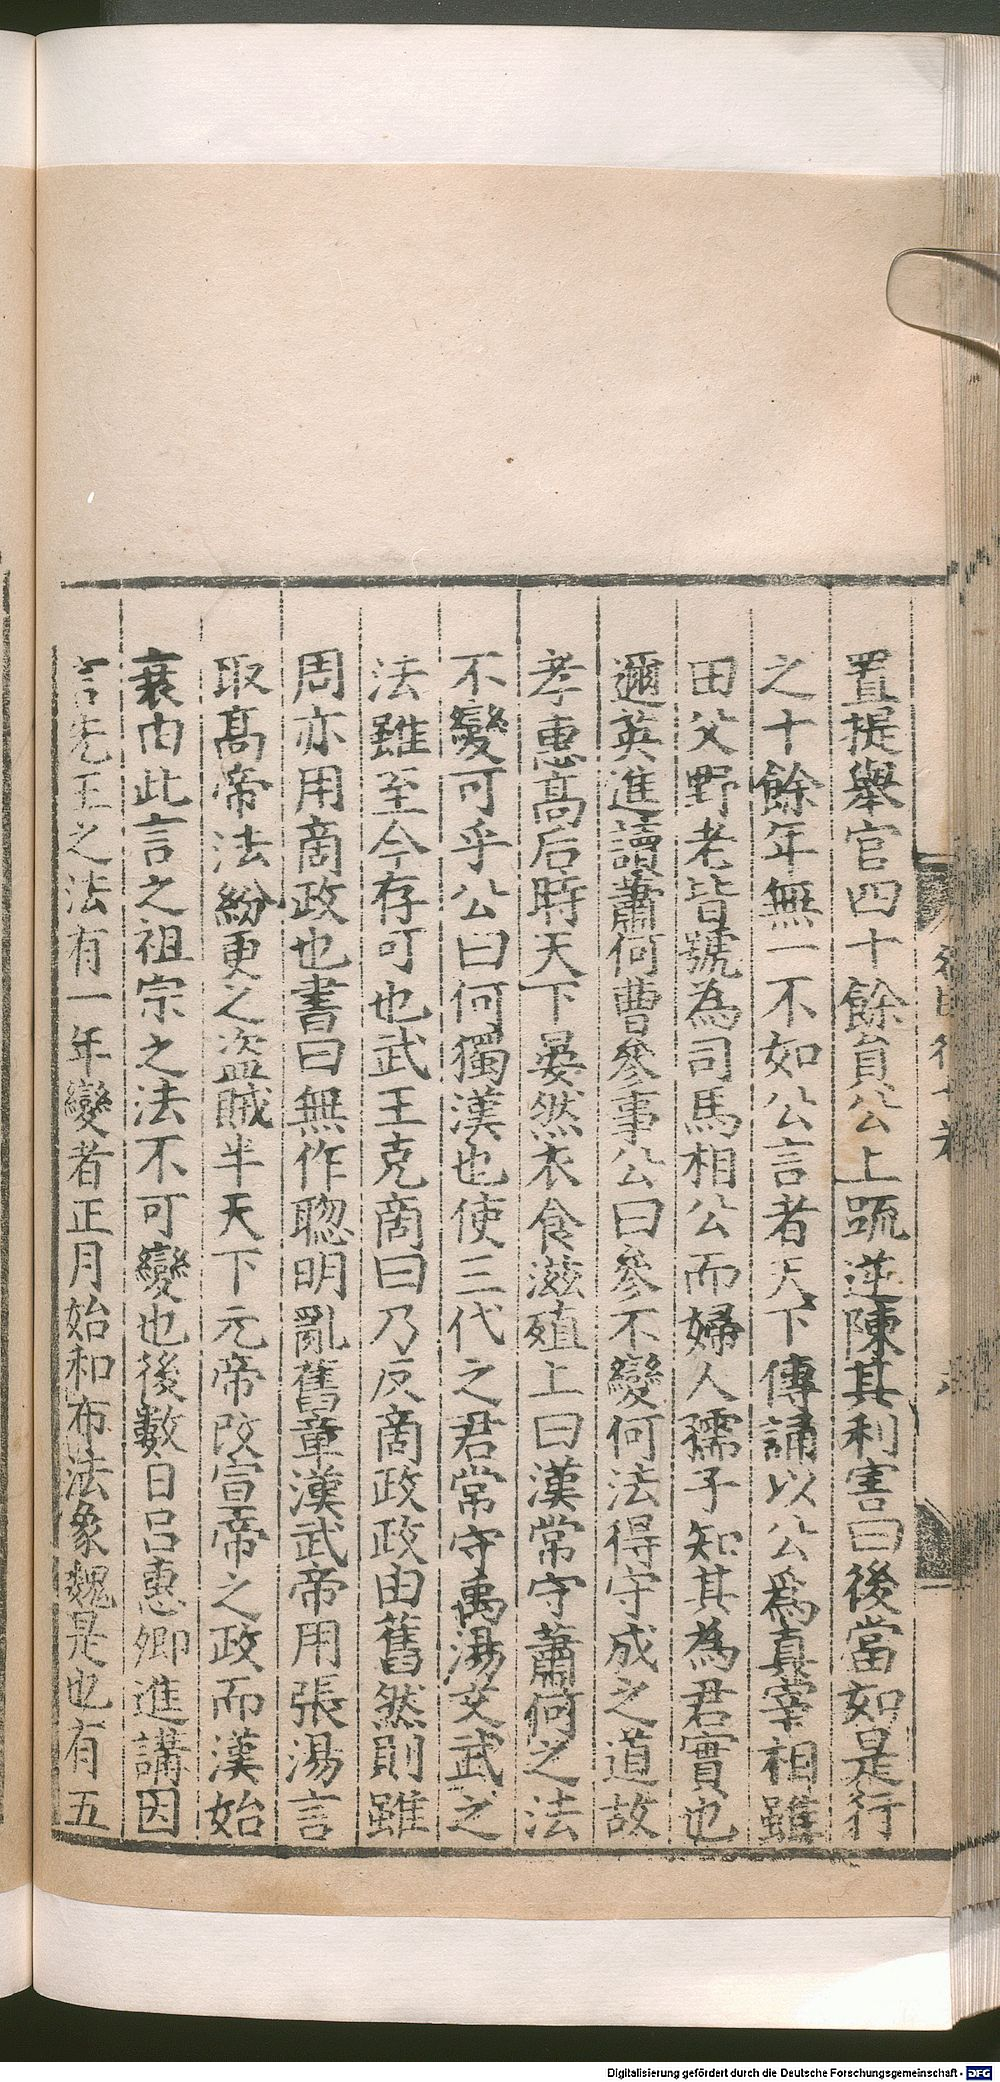 置提舉官四十餘員公上疏逆陳其利害曰後當如是行
之十餘年無一不如公言者天下傳誦以公爲真宰相雖
田父野老皆號為司馬相公而婦人孺子知其為君實也
邇英進讀蕭何曹參事公曰參不變何法得守成之道故
孝惠高后時天下晏然衣食滋殖上曰漢常守蕭何之法
不變可乎公曰何獨漢也使三代之君常守禹湯文武之
法雖至今存可也武王克商曰乃反商政政由舊然則雖
周亦用商政也書曰無作聰明亂舊章漢武帝用張湯言
取髙帝法紛更之盜賊半天下元帝改宣帝之政而漢始
衰由此言之祖宗之法不可變也後數日呂惠卿進講因
言先王之法有一年變者正月始和布法象魏是也有五
Digitalisierung gefördert durch die Deutsche Forschungsgemeinschaft - DFG